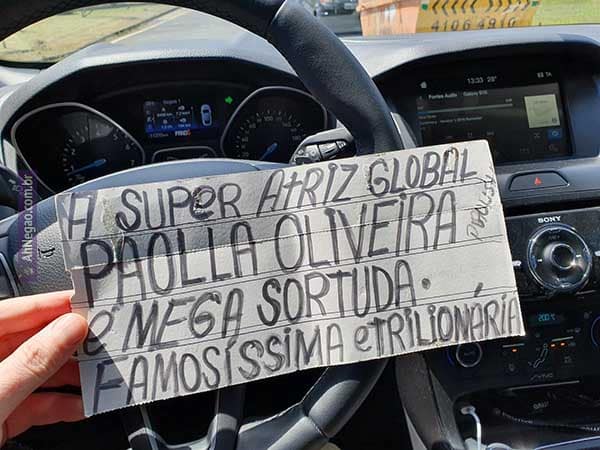 A SUPER ATRIZ GLOBAL
PAOLLA OLIVEIRA
É MEGA SORTUDA.
FAMOSÍSSIMA E TRILIONÁRIA
© AhNegao.com.br
13:33 28°
Fontes Áudio
SONY